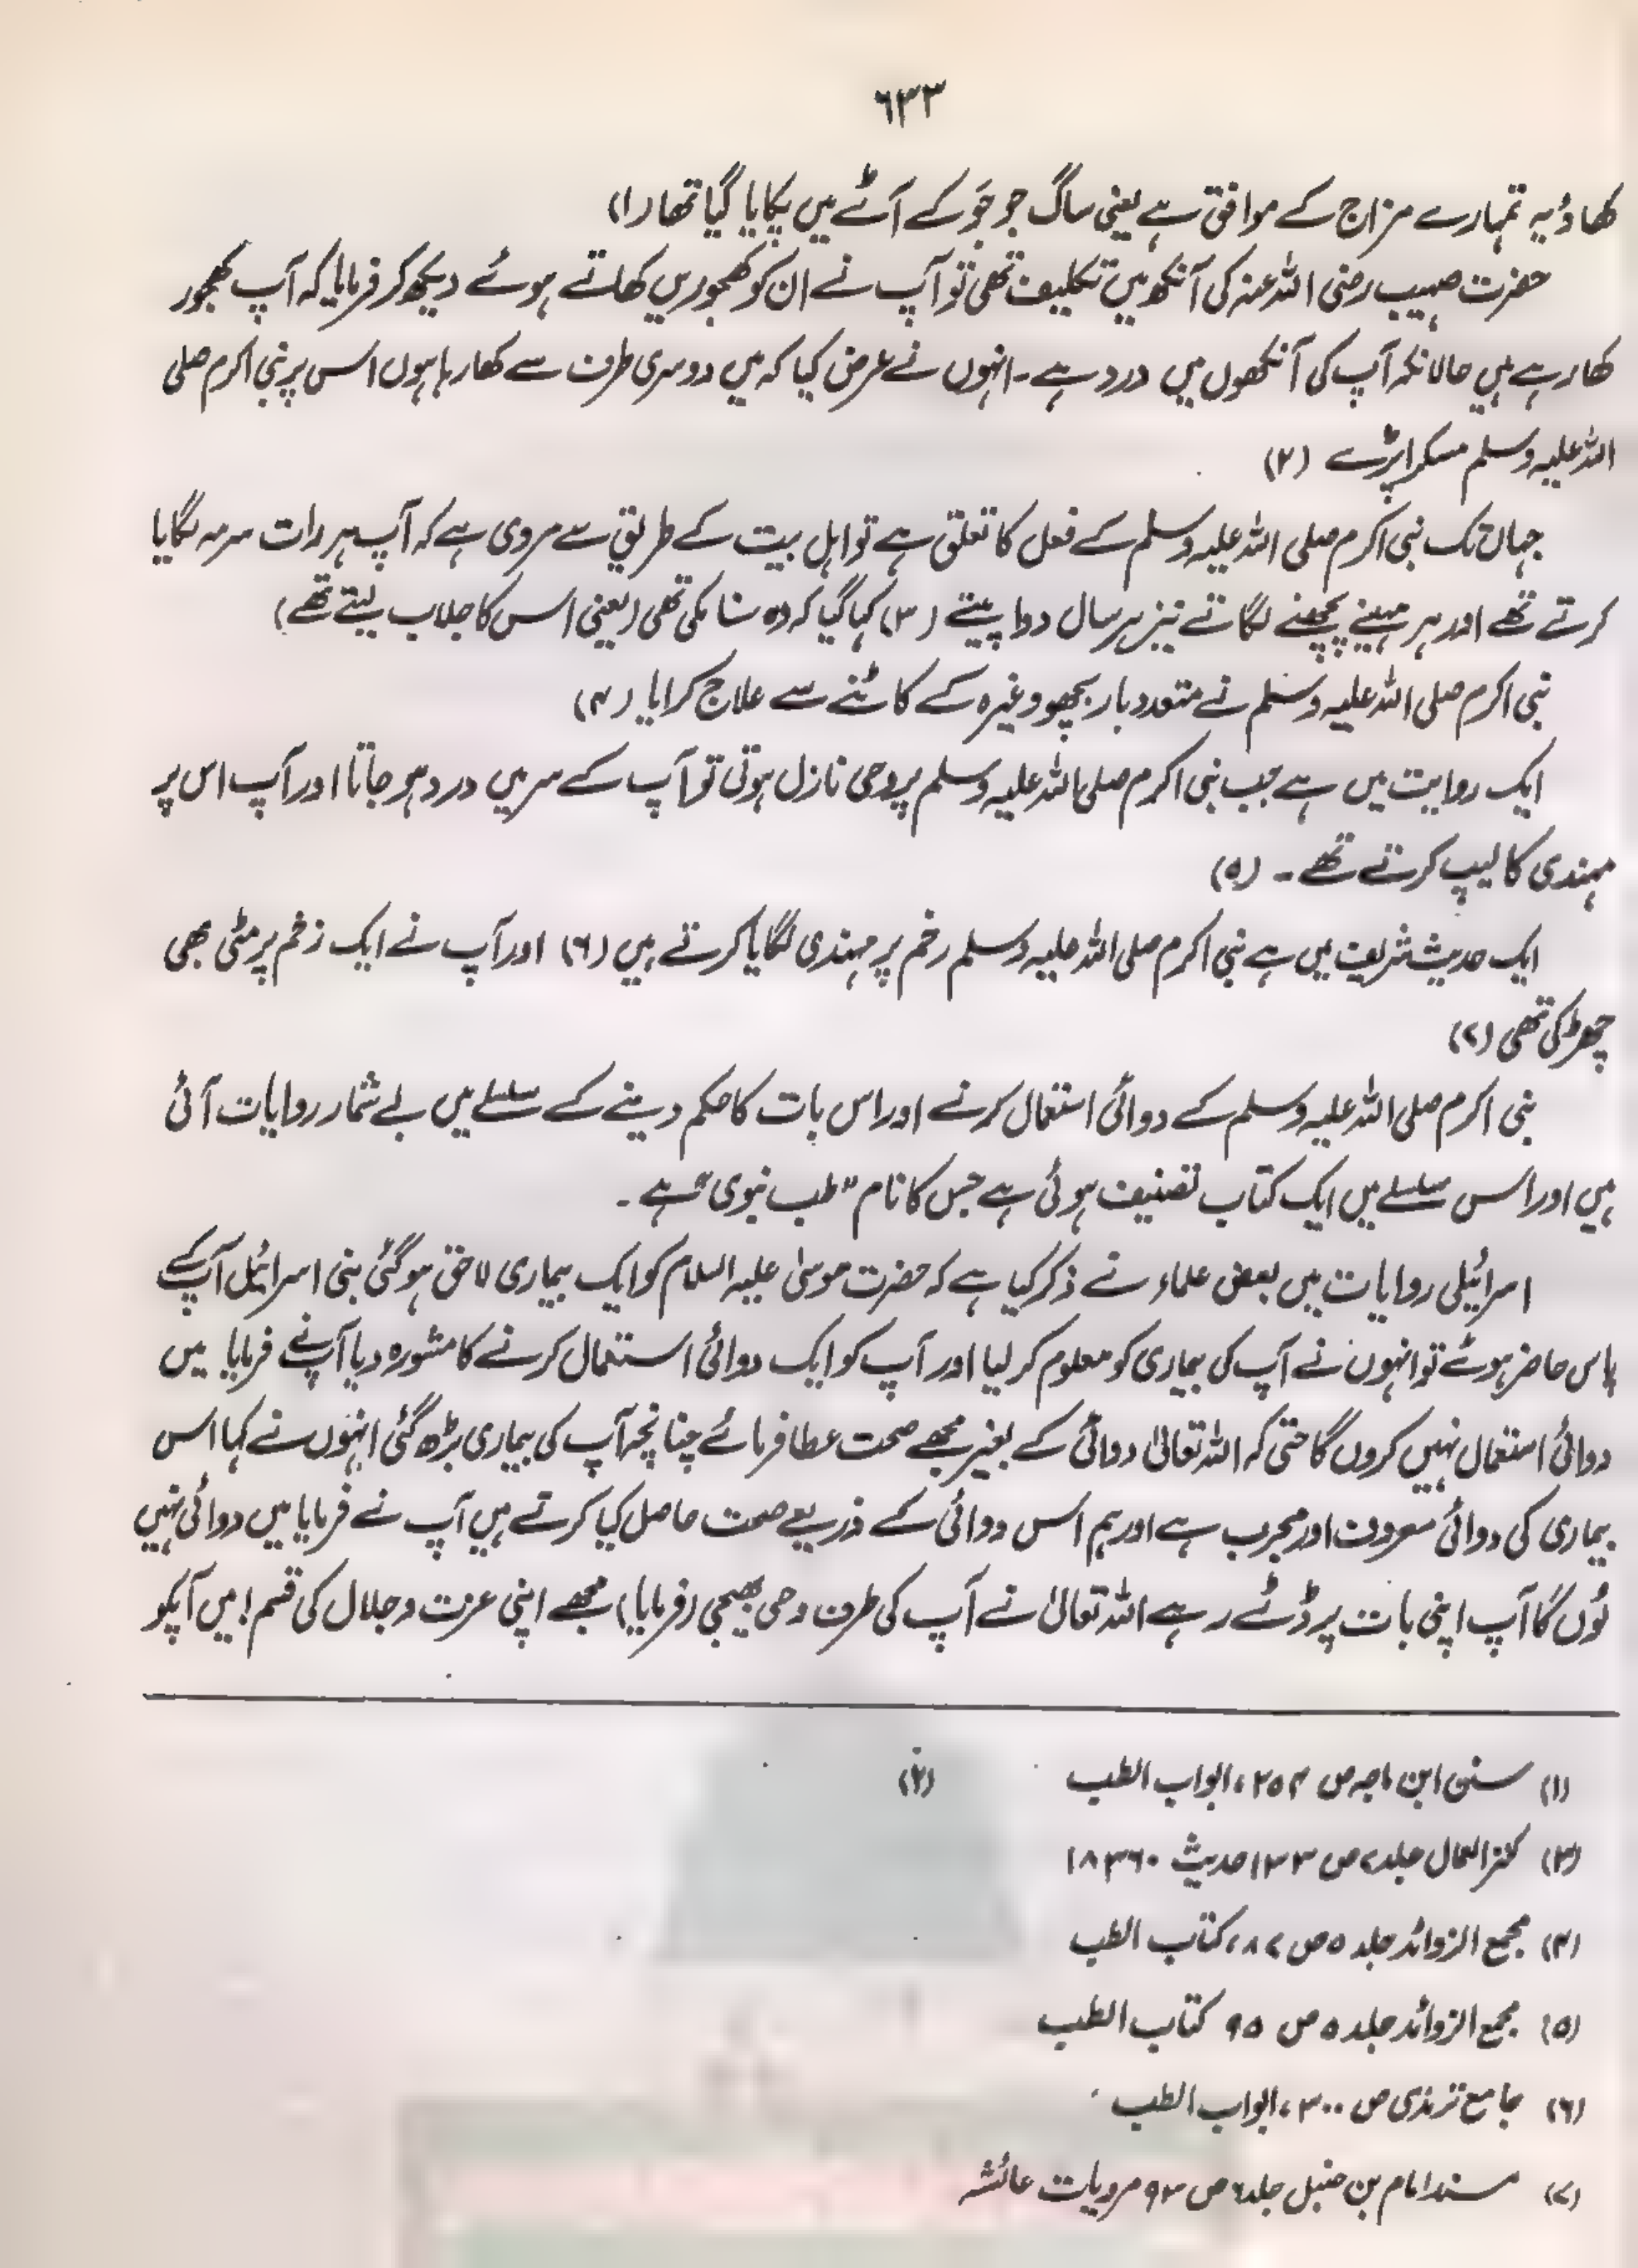 ٦٣٣
کھاؤ یہ تمہارے مزاج کے موافق ہے یعنی ساگ جو جَو کے آٹے میں پکایا گیا تھا (۱)
حضرت صہیب رضی اللہ عنہ کی آنکھ میں تکلیف تھی تو آپ نے ان کو کھجوریں کھاتے ہوئے دیکھ کر فرمایا کہ آپ کھجور
کھا رہے ہیں حالانکہ آپ کی آنکھوں میں درد ہے۔ انہوں نے عرض کیا کہ میں دوسری طرف سے کھا رہا ہوں اس پر نبی اکرم صلی
اللہ علیہ وسلم مسکرا پڑے (۲)
جہاں تک نبی اکرم صلی اللہ علیہ وسلم کے فعل کا تعلق ہے تو اہل بیت کے طریق سے مروی ہے کہ آپ ہر رات سرمہ لگایا
کرتے تھے اور ہر مہینے پچھنے لگاتے نیز ہر سال دوا پیتے (۳) کہا گیا کہ وہ سنا مکی تھی (یعنی اس کا جلاب لیتے تھے)
نبی اکرم صلی اللہ علیہ وسلم نے متعدد بار بچھو وغیرہ کے کاٹنے سے علاج کرایا (۴)
ایک روایت میں ہے جب نبی اکرم صلی اللہ علیہ وسلم پر وحی نازل ہوتی تو آپ کے سر میں درد ہو جاتا اور آپ اس پر
مہندی کا لیپ کرتے تھے۔ (۵)
ایک حدیث شریف میں ہے نبی اکرم صلی اللہ علیہ وسلم زخم پر مہندی لگایا کرتے ہیں (۶) اور آپ نے ایک زخم پر مٹی بھی
چھڑکی تھی (۷)
نبی اکرم صلی اللہ علیہ وسلم کے دوائی استعمال کرنے اور اس بات کا حکم دینے کے سلسلے میں بے شمار روایات آئی
ہیں اور اس سلسلے میں ایک کتاب تصنیف ہوئی ہے جس کا نام "طب نبوی" ہے۔
اسرائیلی روایات میں بعض علماء نے ذکر کیا ہے کہ حضرت موسیٰ علیہ السلام کو ایک بیماری لاحق ہو گئی بنی اسرائیل آپ کے
پاس حاضر ہوئے تو انہوں نے آپ کی بیماری کو معلوم کر لیا اور آپ کو ایک دوائی استعمال کرنے کا مشورہ دیا آپ نے فرمایا میں
دوائی استعمال نہیں کروں گا حتی کہ اللہ تعالیٰ دوائی کے بغیر مجھے صحت عطا فرمائے چنانچہ آپ کی بیماری بڑھ گئی انہوں نے کہا اس
بیماری کی دوائی معروف اور مجرب ہے اور ہم اس دوائی کے ذریعے صحت حاصل کیا کرتے ہیں آپ نے فرمایا میں دوائی نہیں
لوں گا آپ اپنی بات پر ڈٹے رہے اللہ تعالیٰ نے آپ کی طرف وحی بھیجی (فرمایا) مجھے اپنی عزت و جلال کی قسم! میں آپکو
(۱) سنن ابن ماجہ ص ۲۵۴، ابواب الطب (۲)
(۳) کنز العمال جلد ۷ ص ۱۲۳ حدیث ۱۸۳۶۰
(۴) مجمع الزوائد جلد ۵ ص ۸۷، کتاب الطب
(۵) مجمع الزوائد جلد ۵ ص ۹۵ کتاب الطب
(۶) جامع ترمذی ص ۳۰۰، ابواب الطب
(۷) مسند امام بن حنبل جلد ۶ ص ۹۳ مرویات عائشہ